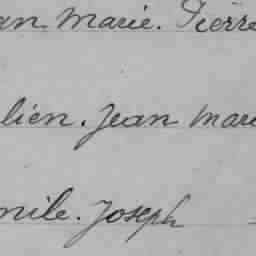 an Marie. Pierre
lien. Jean Mari
mile. Joseph